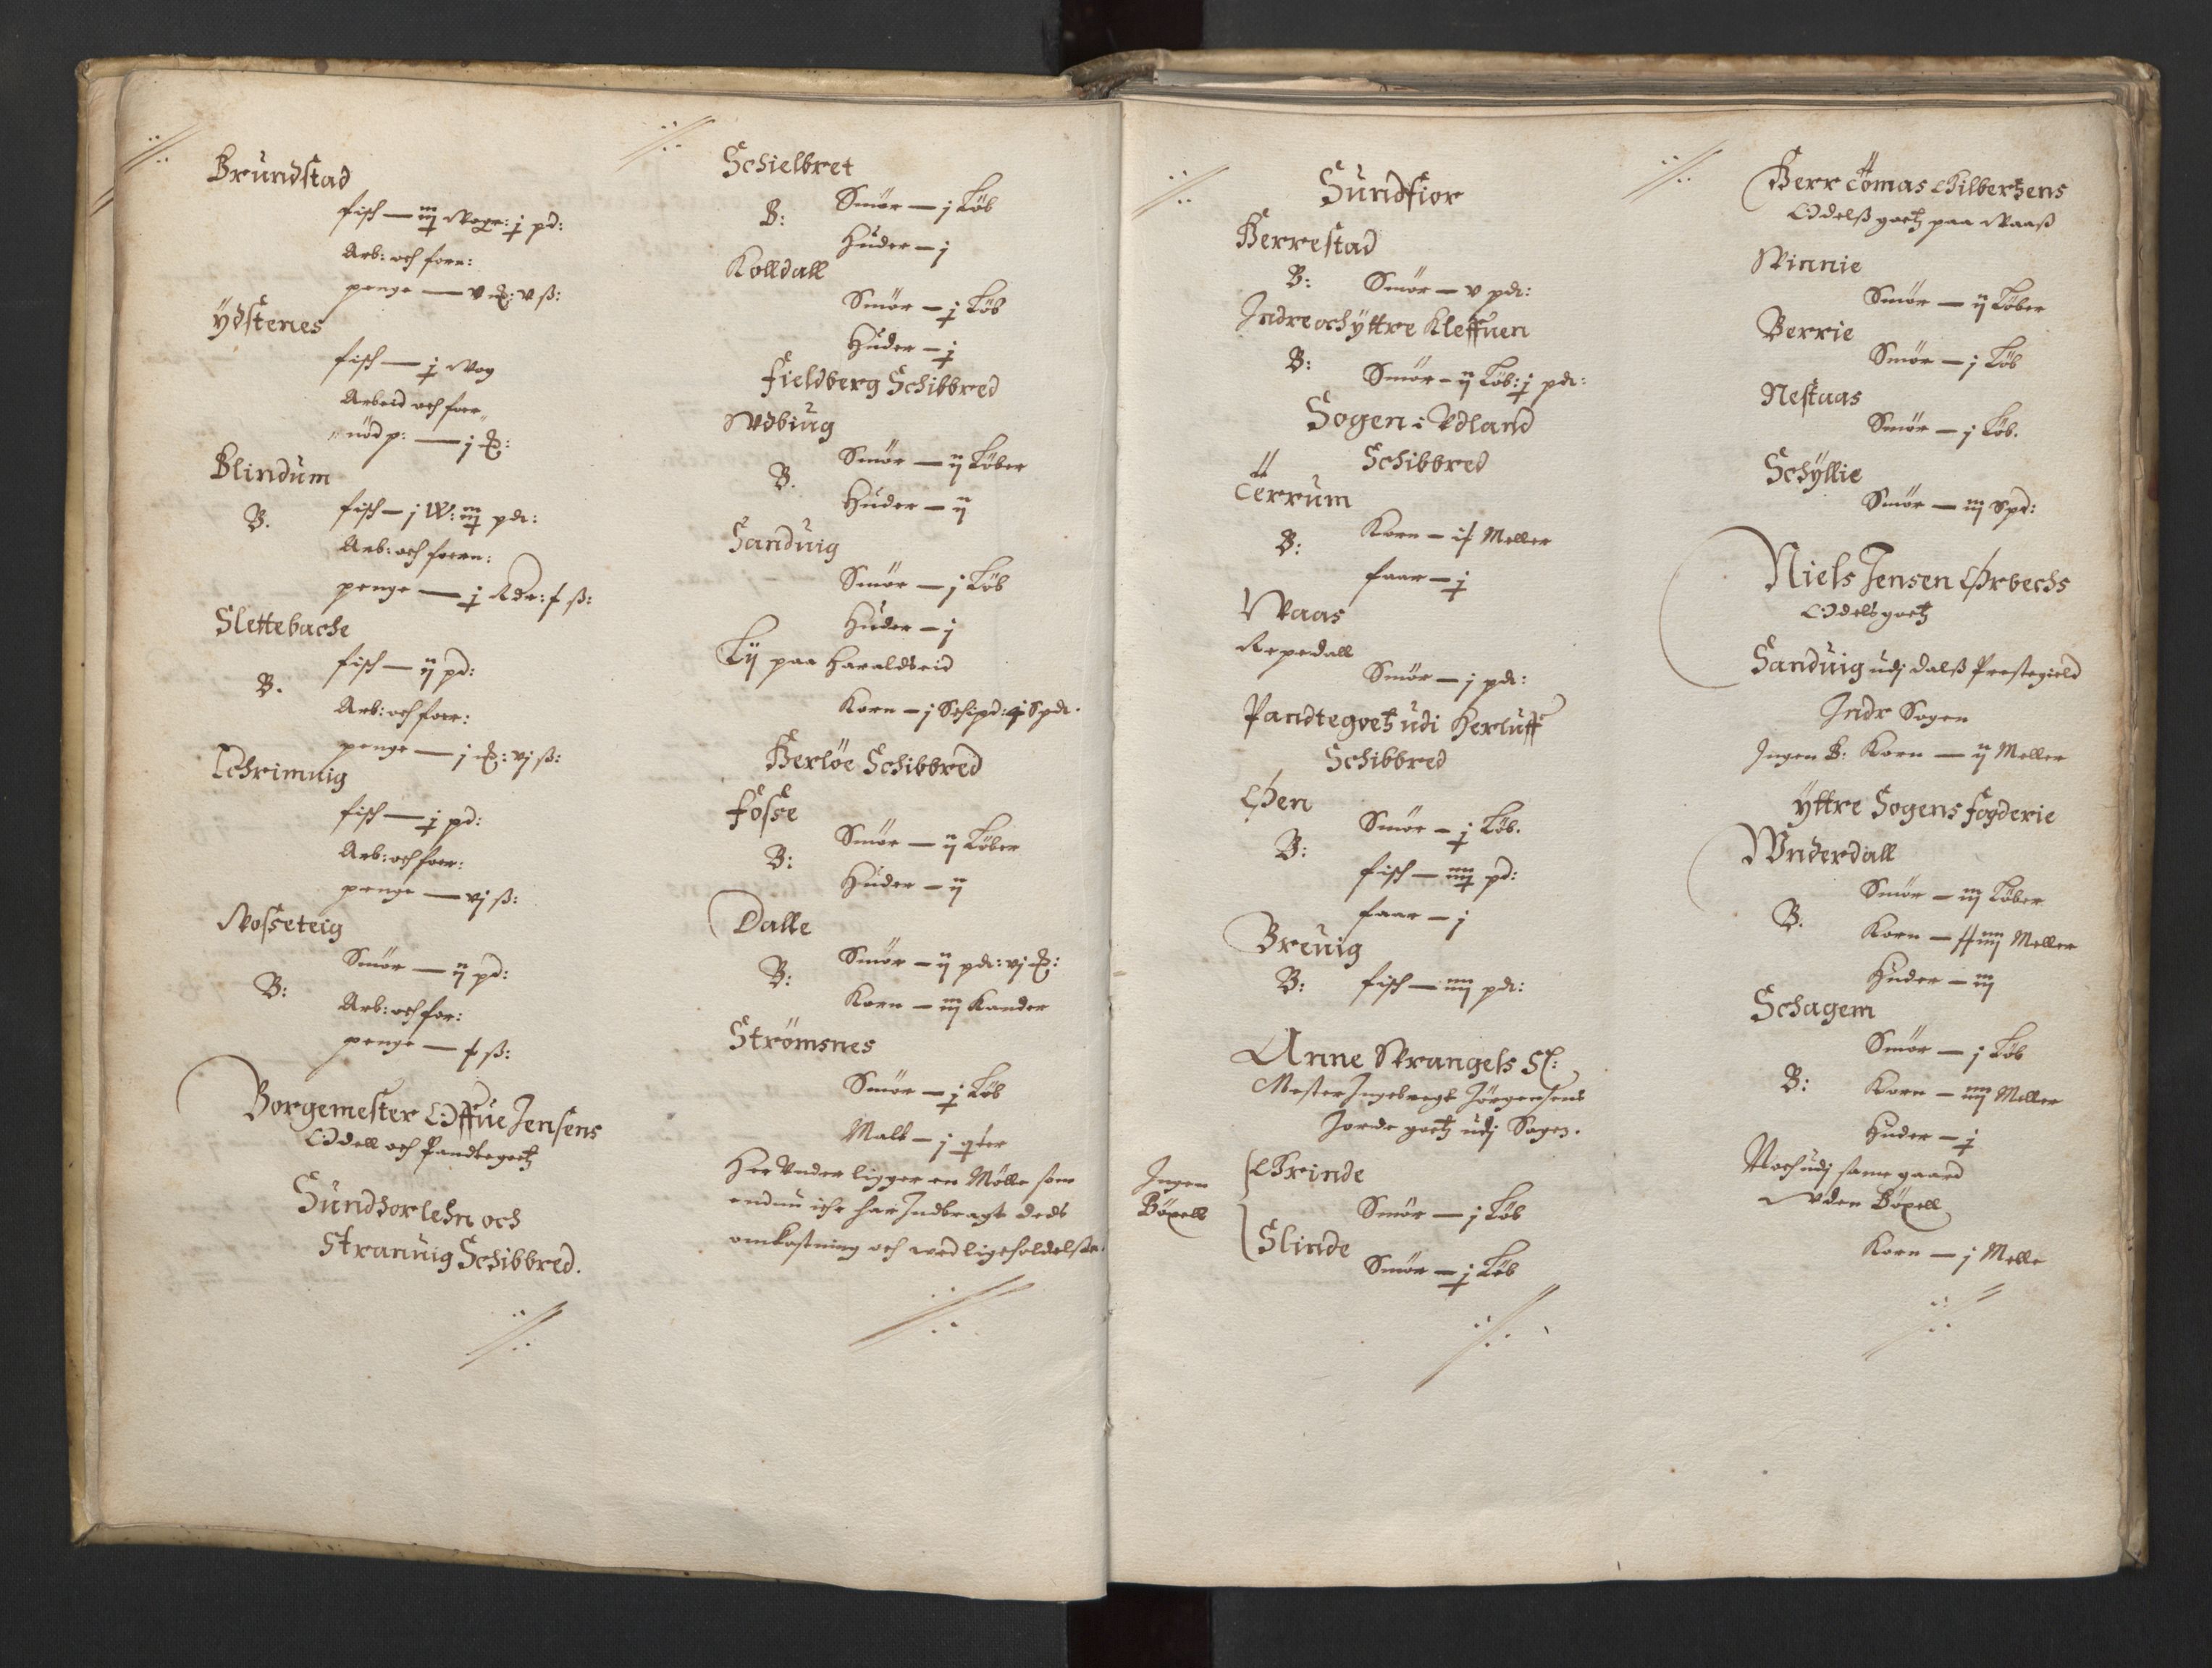 Brundstad
fisch — iij Woger: j pd:
Arb: och foer:
penge — v : v ß:
Ÿdstenes
fisch — j Wog
Arbeid och foer
nöd p: — j
Blindum
B. fisch — j W: iij pdt:
Arb: och foern:
penge — j Rdr: ß:
Slettebache
B. fisch — ij pd:
Arb: och foer:
penge — j : vj ß:
fisch — j pd:
Arb: och foer:
penge — vj ß:
Wosseteig
B: Smör — ij pd:
Arb: och for:
penge — ß:
Borgemester Offue Jensens
Odell och Pandtegoetz
Sundhorlehn och
Stranuig Schibbred.
Schielbret
B: Smör — j Löb
Huder — j
Kolldall
Smör — j Löb
Huder — j
Fieldberg Schibbred
Wdbiug
B. Smör — ij Löber
Huder — ij
Sanduig
Smör — j Löb
Huder — j
Lij paa Haraldseid
Korn — j Schipd: Spdt.
Herlöe Schibbred
Fosse
B: Smör — ij Löber
Huder — ij
Dalle
B: Smör — ij pdt: vj
Korn — iij Kander
Strömsnes
Smör — j Löb
Malt — j qter
Her Vnder ligger en Mölle som
endnu iche har Indbragt deds
omkostning och ved ligeholdelse.
Sundfior
Herrestad
B: Smör — v pdt:
Indre och ÿttre Kleffuen
B: Smör — ij Löb: j pdt:
Sogen i Vdland
Schibbred
Terrum
B: Korn — Meller
faar — j
Waas
Repedall
Smör — j pdt:
Pandtegoetz udi Herluff
Schibbred
Öen
B: Smör — j Löb.
fisch — iiij pd:
faar — j
Breuig
B: fisch — iiij pdt:
Anne Wrangels Sl:
Mester Ingebregt Jörgensens
Jorde goetz udj Sogen.
Ingen
Böxell
Grinde
Smör — j Löb
Slinde
Smör — j Löb
Herr Tomas Gilbertzens
Odelß goetz paa Waaß
Winnie
Smör — ij Löber
Berrie
Smör — j Löb
Nestaas
Smör — j Löb.
Schÿllie
Smör — iij Spd:
Niels Jensen Örbechs
Odels goetz
Sanduig udj Dalß Prestegield
Indr Sogen
Ingen B: Korn — ij Meller
Ÿttre Sogens Fogderie
Wnderdall
B. Smör — iij Löber
Korn — iiij Meller
Huder — iij
Schagem
B: Smör — j Löb
Korn — iiij Meller
Huder — j
Noch udj same gaard
Vden Böxell
Korn — j Melle